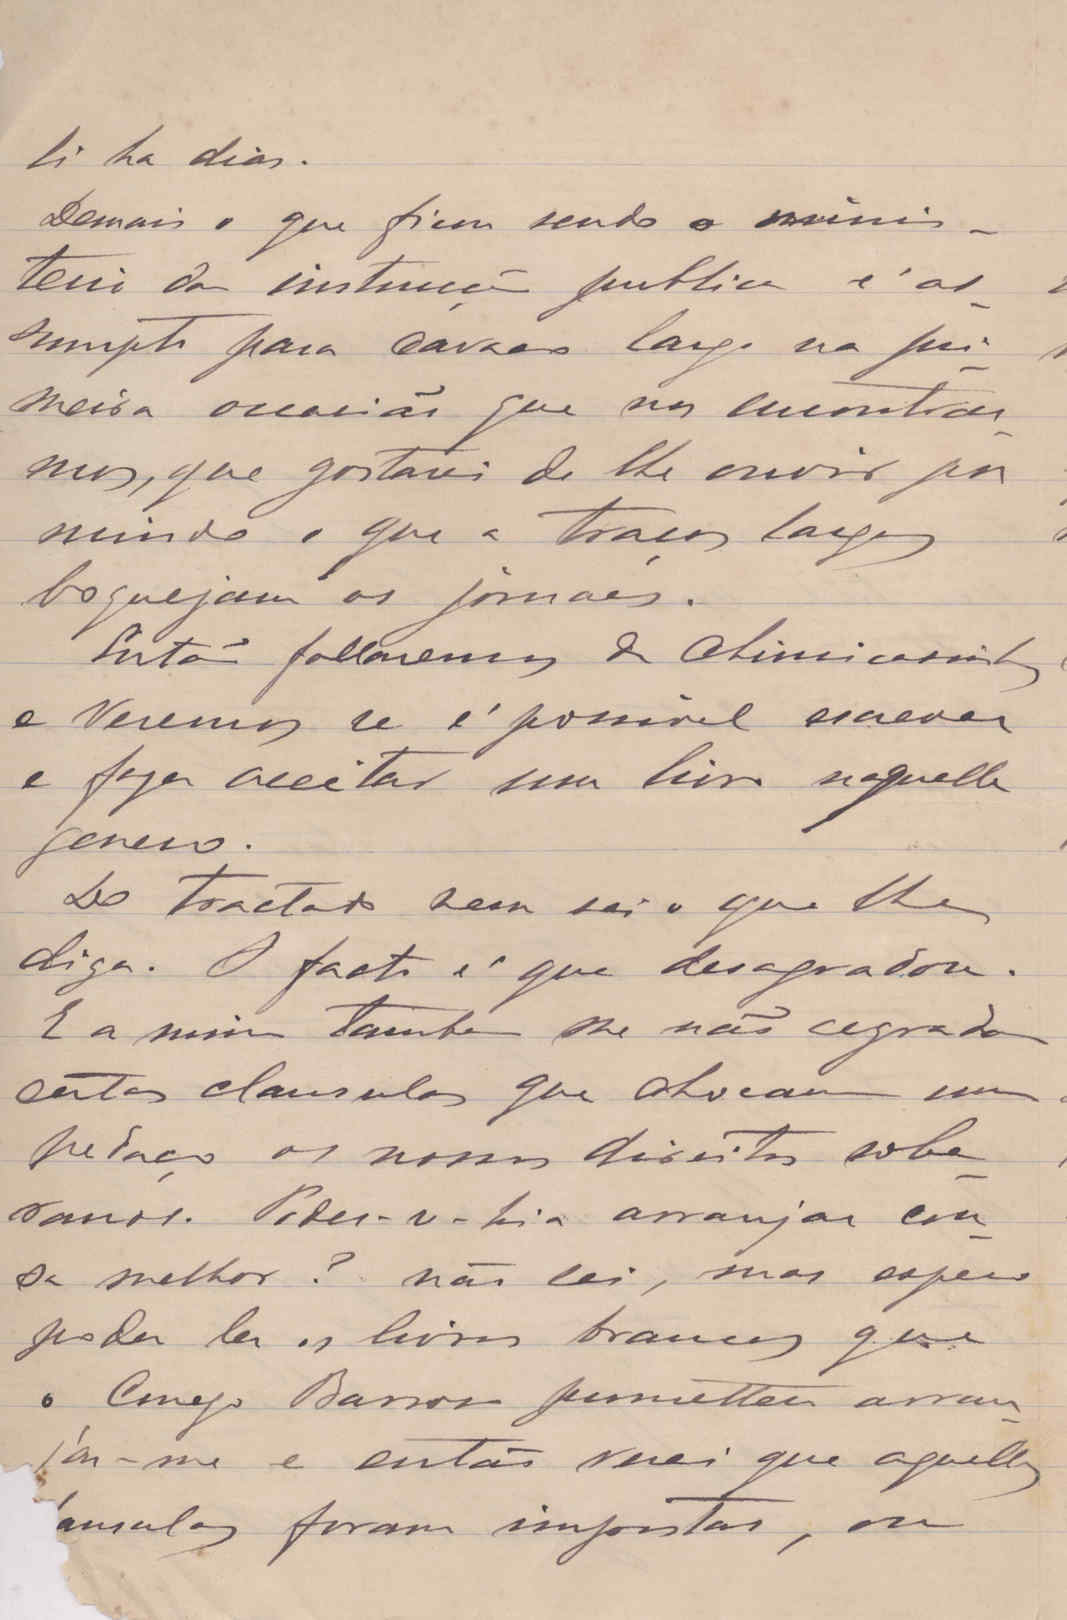 li ha dias.
Demais o que ficou sendo o minis-
terio da instrucção publica é as-
sumpto para cavaco largo na pri-
meira occasião que nos encontrar-
mos, que gostarei de lhe ouvir por
miudo o que a traços largos
boquejam os jornaes.
Então fallaremos da
e veremos se é possivel escrever
e fazer acceitar um livro naquelle
genero.
Do tractado nem sei o que lhe
diga. O facto é que desagradou.
E a mim tambem me não agradam
certas clausulas que chocam um
pedaço os nossos direitos sobe-
ranos. Poder-se-hia arranjar cou-
sa melhor? não sei, mas espero
poder ler os livros brancos que
o Conego Barroso prometteu arran-
jar-me e então verei que aquellas
lausulas foram impostas, ou